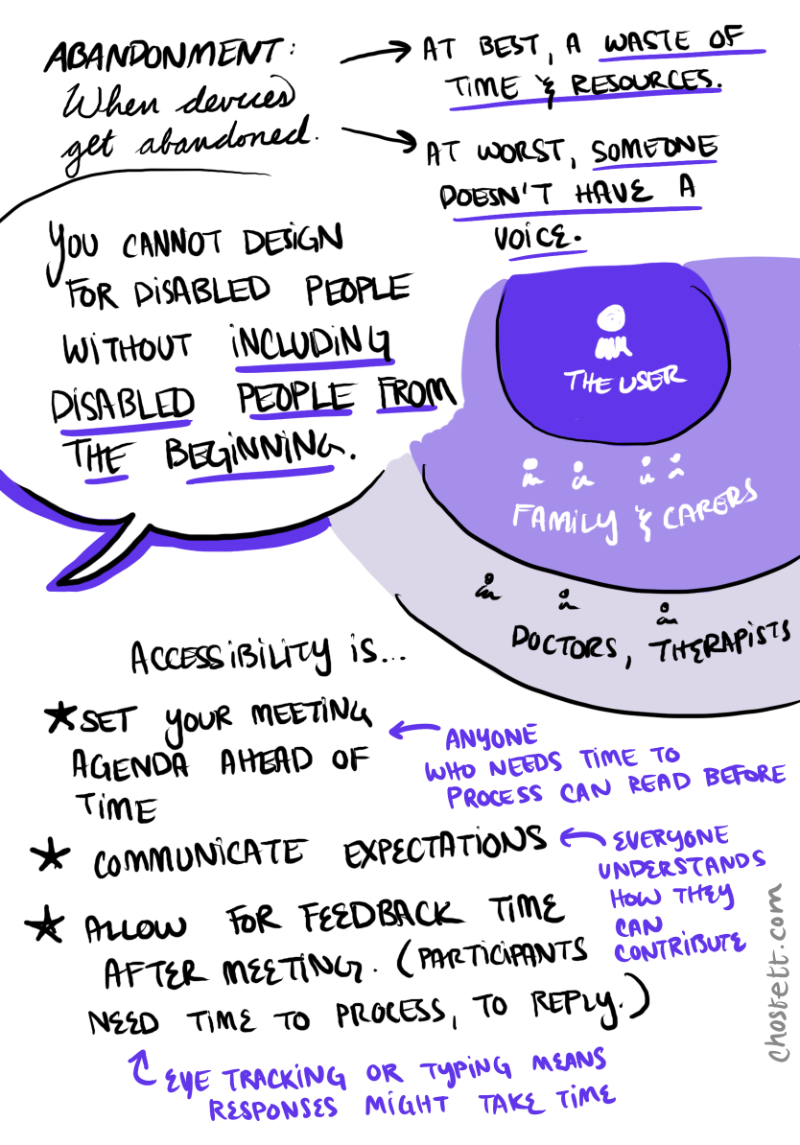 ABANDONMENT:
When devices
get abandoned.
AT BEST, A WASTE OF
TIME & RESOURCES.
AT WORST, SOMEONE
DOESN'T HAVE A
VOICE.
YOU CANNOT DESIGN
FOR DISABLED PEOPLE
WITHOUT INCLUDING
DISABLED PEOPLE FROM
THE BEGINNING.
THE USER
FAMILY & CARERS
DOCTORS, THERAPISTS
ACCESSIBILITY IS...
★ SET YOUR MEETING
AGENDA AHEAD OF
TIME
ANYONE
WHO NEEDS TIME TO
PROCESS CAN READ BEFORE
★ COMMUNICATE EXPECTATIONS
EVERYONE
UNDERSTANDS
HOW THEY
CAN
CONTRIBUTE
★ ALLOW FOR FEEDBACK TIME
AFTER MEETING. (PARTICIPANTS
NEED TIME TO PROCESS, TO REPLY.)
EYE TRACKING OR TYPING MEANS
RESPONSES MIGHT TAKE TIME
chosfett.com